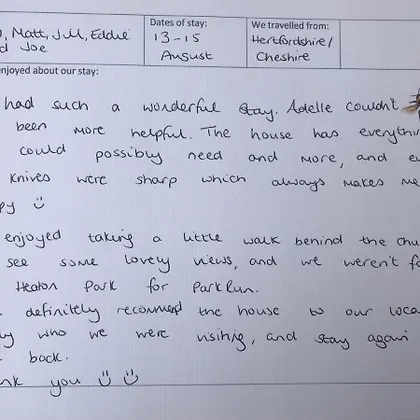 Matt, Jill, Eddie
Joe
Dates of stay:
13-15
August
We travelled from:
Hertfordshire/
Cheshire
enjoyed about our stay:
had such a wonderful stay. Adelle couldn't
been more helpful. The house has everythin
could possibly need and more, and e
knives were sharp which always makes me
py
enjoyed taking a little walk behind the chu
see some lovely views, and we weren't fa
Heaton Park for ParkRun.
definitely recommend the house to our loca
ly who we were visitig, and stay again
back.
nk you